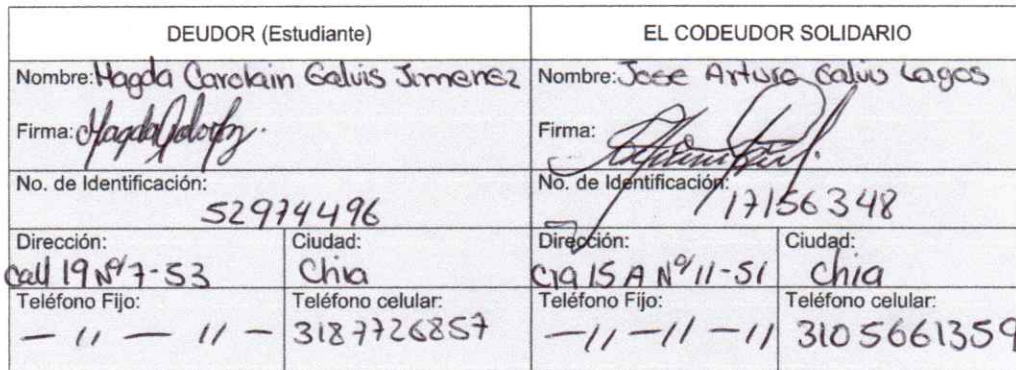 DEUDOR (Estudiante)
EL CODEUDOR SOLIDARIO
Nombre: Magda Carolain Galvis Jimenez
Nombre: Jose Arturo Galvis Lagos
Firma:
Firma:
No. de Identificación:
52974496
No. de Identificación:
17156348
Dirección:
Call 19 Nº 7-53
Ciudad:
Chia
Dirección:
Cra 15 A Nº 11-51
Ciudad:
Chia
Teléfono Fijo:
— 11 — 11 —
Teléfono celular:
3187726857
Teléfono Fijo:
—11 —11 —11
Teléfono celular:
3105661359